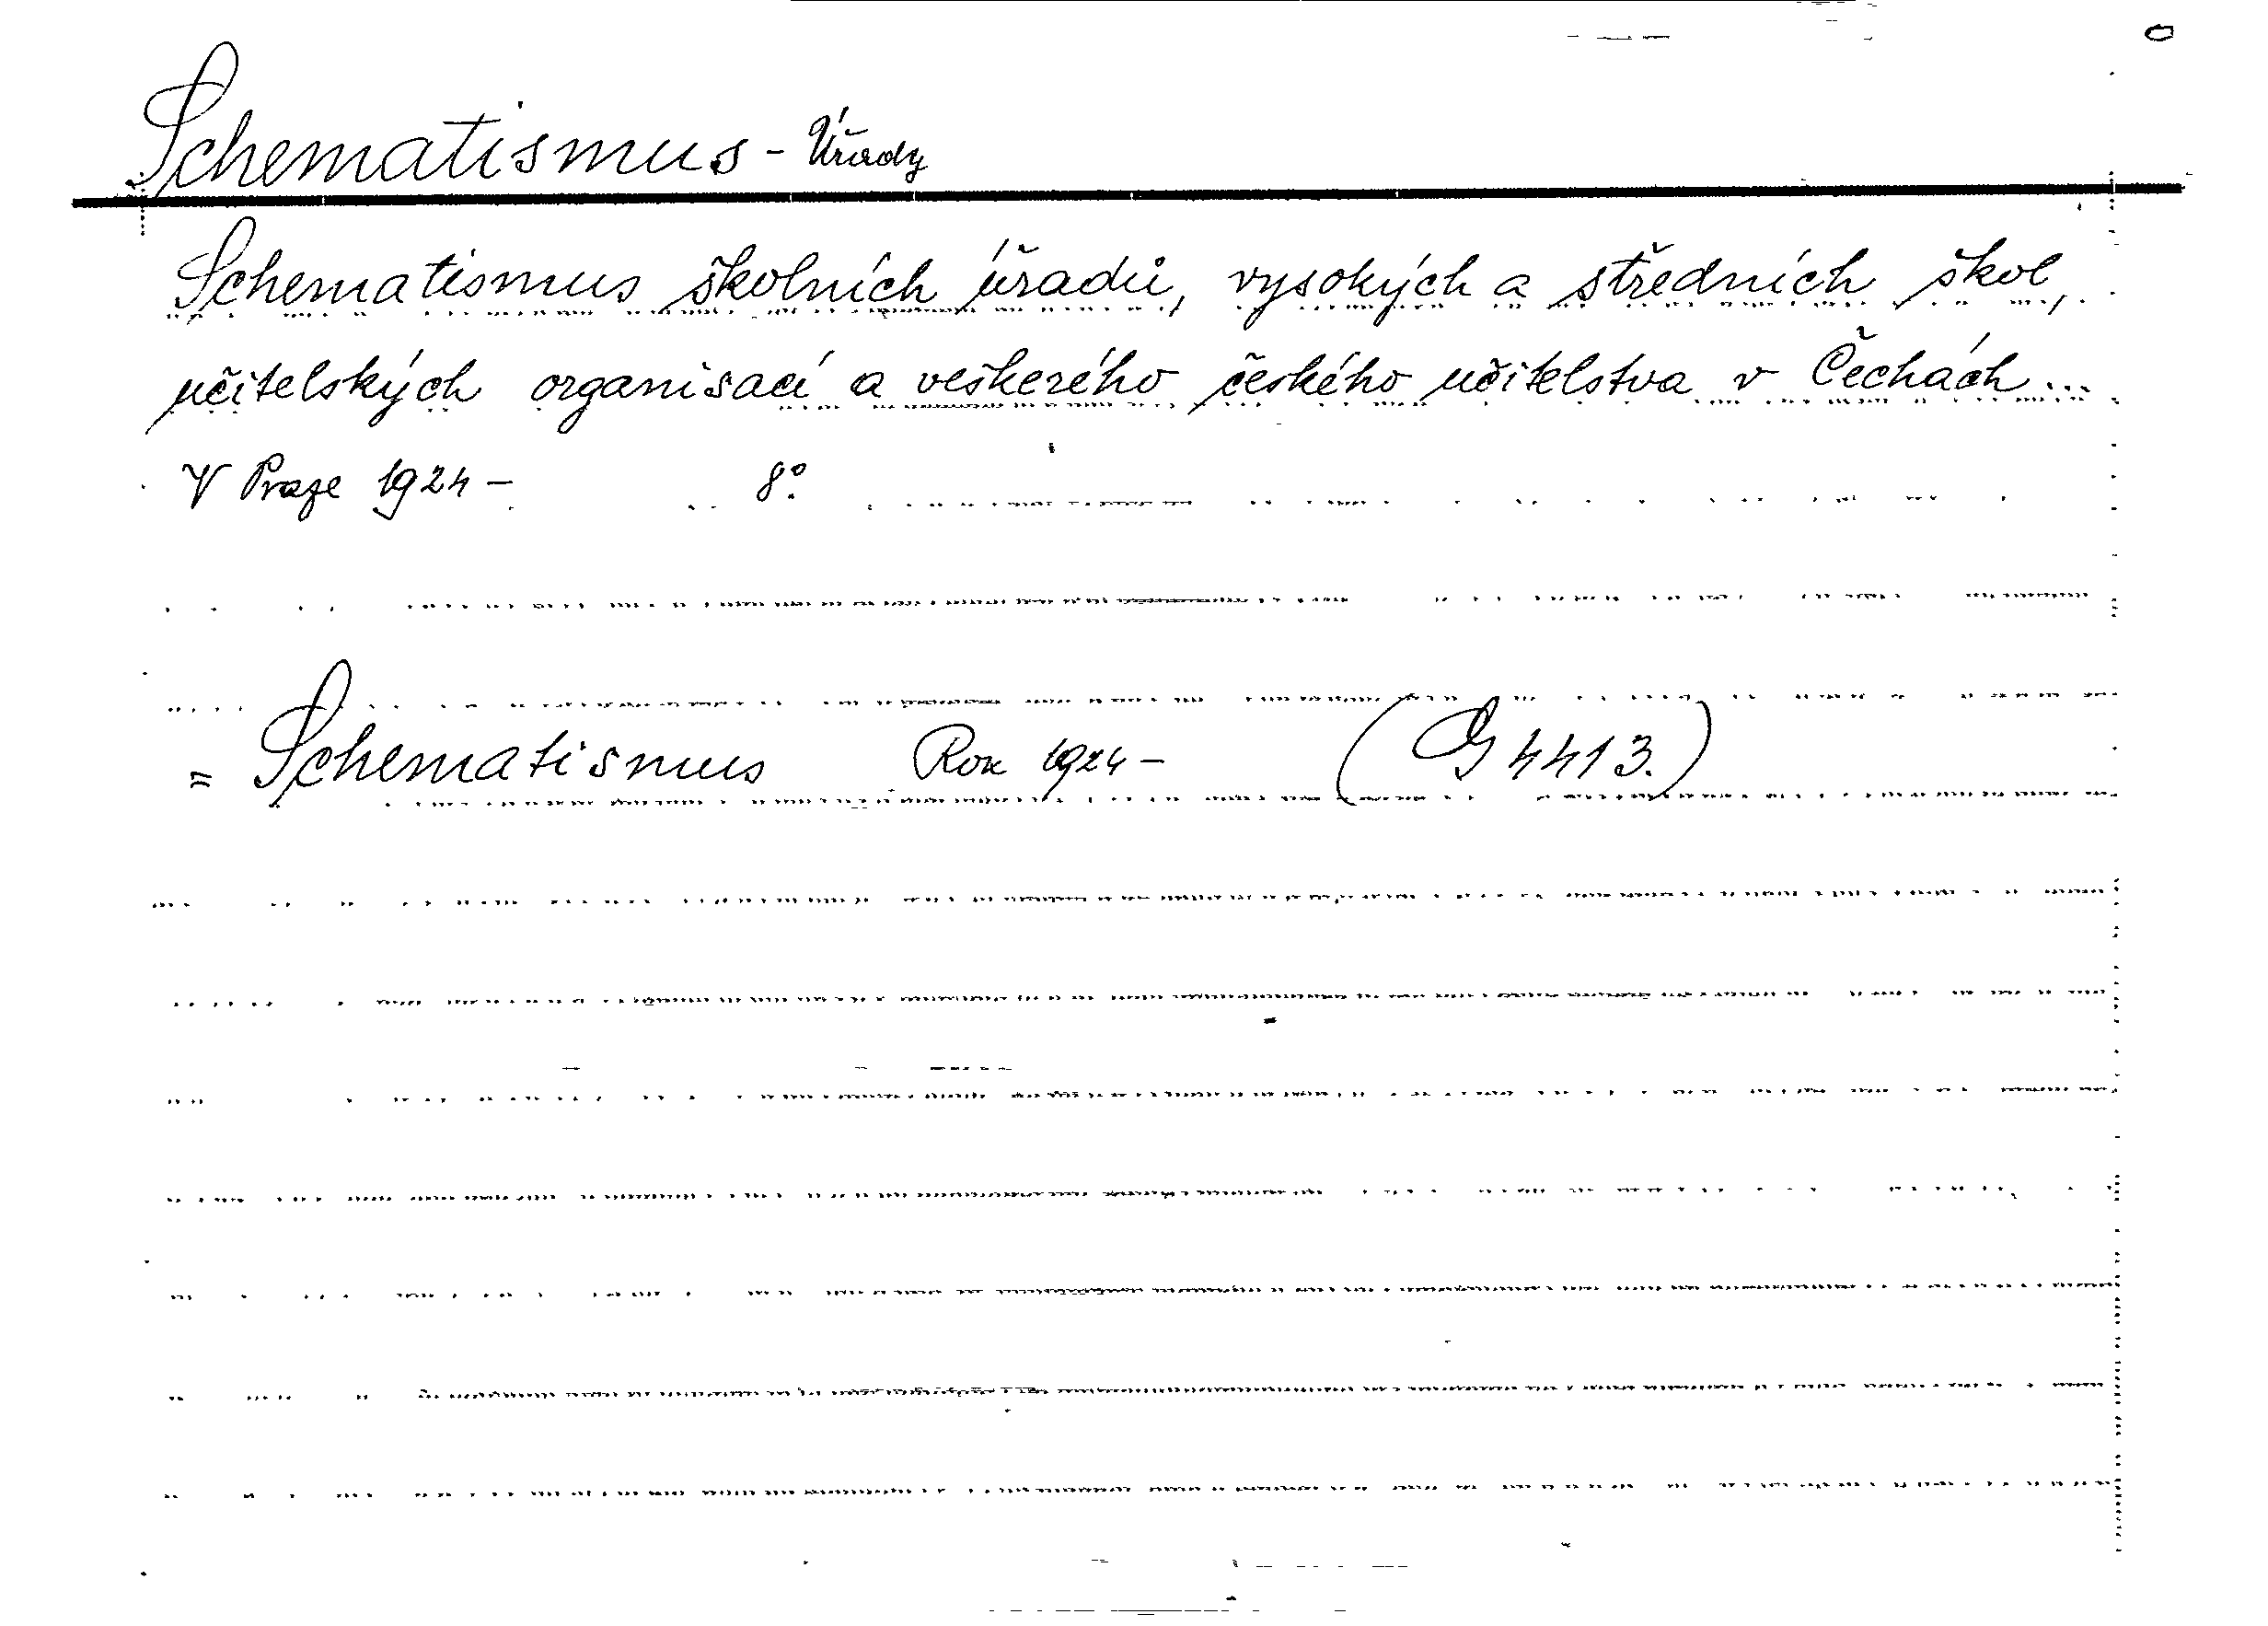 Schematismus - Úřady
Schematismus školních úřadů, vysokých a středních škol,
učitelských organisací a veškerého českého učitelstva v Čechách...
V Praze 1924 - 8°.
= Schematismus Rok 1924 - (G 4413.)